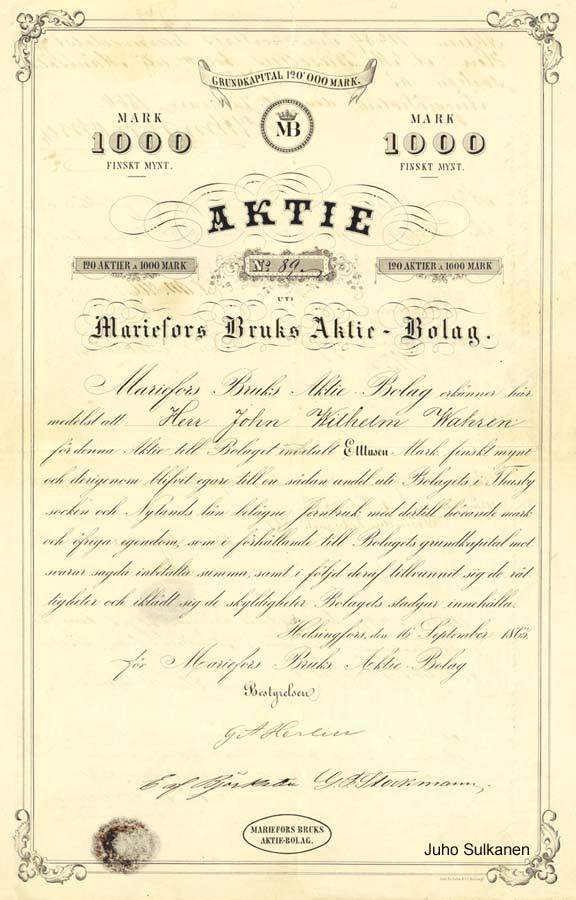 GRUNDKAPITAL 120'000 MARK.
MB
MARK
1000
FINSKT MYNT.
MARK
1000
FINSKT MYNT.
AKTIE
120 AKTIER A 1000 MARK
No 89
120 AKTIER A 1000 MARK
UTI
Mariefors Bruks Aktie-Bolag.
Mariefors Bruks Aktie-Bolag erkänner här
medelst att Herr John Wilhelm Wahren
för denna Aktie till Bolaget inbetalt Ettusen Mark finskt mynt
och derigenom blifvit egare till en sådan andel uti Bolagets i Thusby
socken och Nylands län belägne Jernbruk med dertill hörande mark
och öfriga egendom, som i förhållande till Bolagets grundkapital mot
svarar sagda inbetalta summa, samt i följd deraf tillvunnit sig de rät
tigheter och iklädt sig de skyldigheter Bolagets stadgar innehålla.
Helsingfors, den 16 September 1865.
för Mariefors Bruks Aktie-Bolag
Bestyrelsen
G A Herlin
E af Björksten G. F. Stockmann.
MARIEFORS BRUKS
AKTIE-BOLAG.
Juho Sulkanen